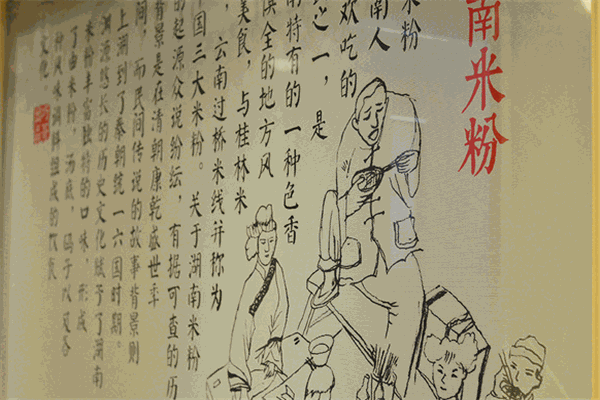 南米粉
米粉
南人
欢吃的
之一，是
南特有的一种色香
俱全的地方风
美食，与桂林米
，云南过桥米线并称为
中国三大米粉。关于湖南米粉
的起源众说纷纭，有据可查的历
背景是在清朝康乾盛世年
间，而民间传说的故事背景则
上溯到了秦朝统一六国时期。
渊源悠长的历史文化赋予了湖南
米粉丰富独特的口味，形成
了由米粉，汤底，码子以及各
种风味调料组成的
文化。